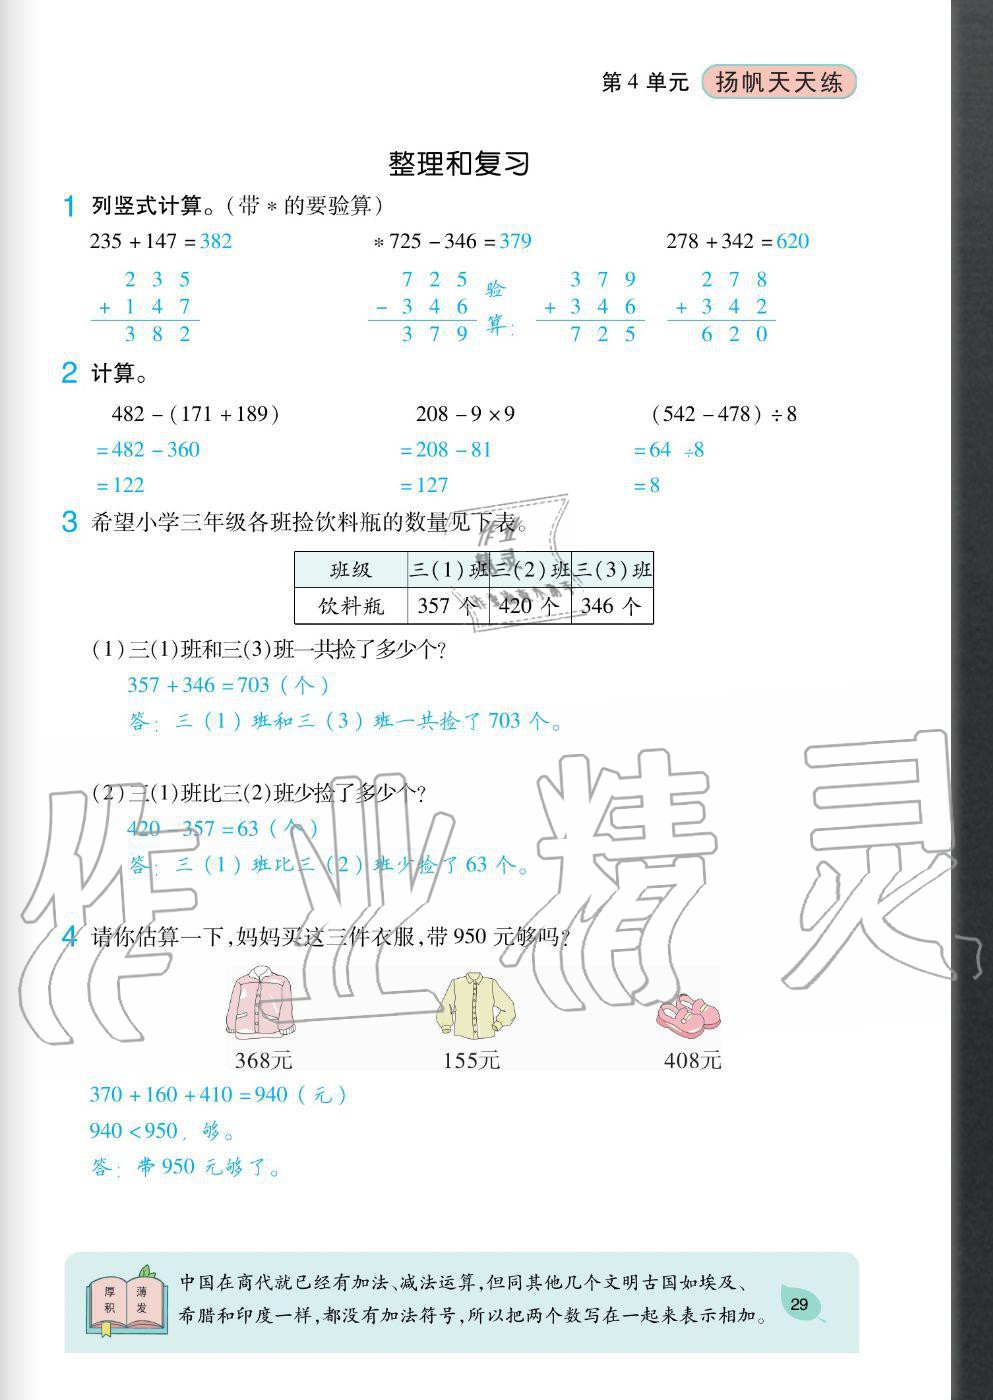 第 4 单元 扬帆天天练
整理和复习
1 列竖式计算。(带 * 的要验算)
235 + 147 = 382 * 725 - 346 = 379 278 + 342 = 620
2 3 5 7 2 5 验 3 7 9 2 7 8
+ 1 4 7 - 3 4 6 算: + 3 4 6 + 3 4 2
3 8 2 3 7 9 7 2 5 6 2 0
2 计算。
482 - (171 + 189) 208 - 9 × 9 (542 - 478) ÷ 8
= 482 - 360 = 208 - 81 = 64 ÷8
= 122 = 127 = 8
3 希望小学三年级各班捡饮料瓶的数量见下表。
班级 三(1)班 三(2)班 三(3)班
饮料瓶 357 个 420 个 346 个
(1) 三(1)班和三(3)班一共捡了多少个?
357 + 346 = 703 (个)
答: 三(1)班和三(3)班一共捡了 703 个。
(2) 三(1)班比三(2)班少捡了多少个?
420 - 357 = 63 (个)
答: 三(1)班比三(2)班少捡了 63 个。
4 请你估算一下,妈妈买这三件衣服,带 950 元够吗?
368元 155元 408元
370 + 160 + 410 = 940 (元)
940 < 950, 够。
答: 带 950 元够了。
厚积 薄发
中国在商代就已经有加法、减法运算,但同其他几个文明古国如埃及、
希腊和印度一样,都没有加法符号,所以把两个数写在一起来表示相加。
29
作业精灵